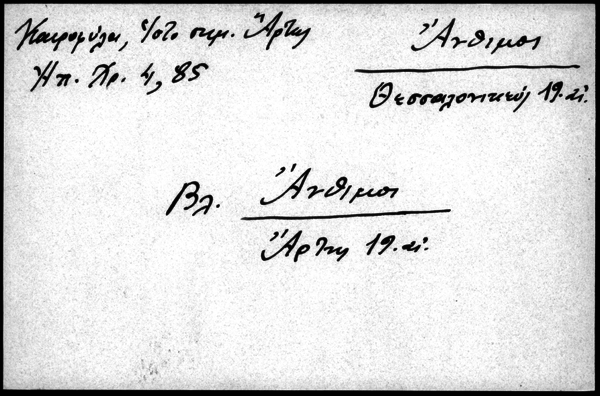 Καιρομύλοι, Ἱστο σημ. Ἄρτης
Ἠπ. Χρ. 4, 85
Ἄνθιμος
Θεσσαλονικεύς 19. αἰ.
Βλ. Ἄνθιμος
Ἄρτης 19. αἰ.